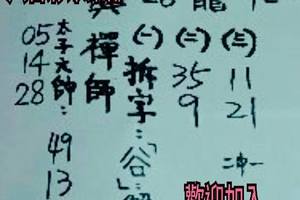 龍
禪師
(一)
(二)
(三)
拆字：「谷」
35
9
11
21
二中一
太子元帥：
05
14
28
49
13
歡迎加入